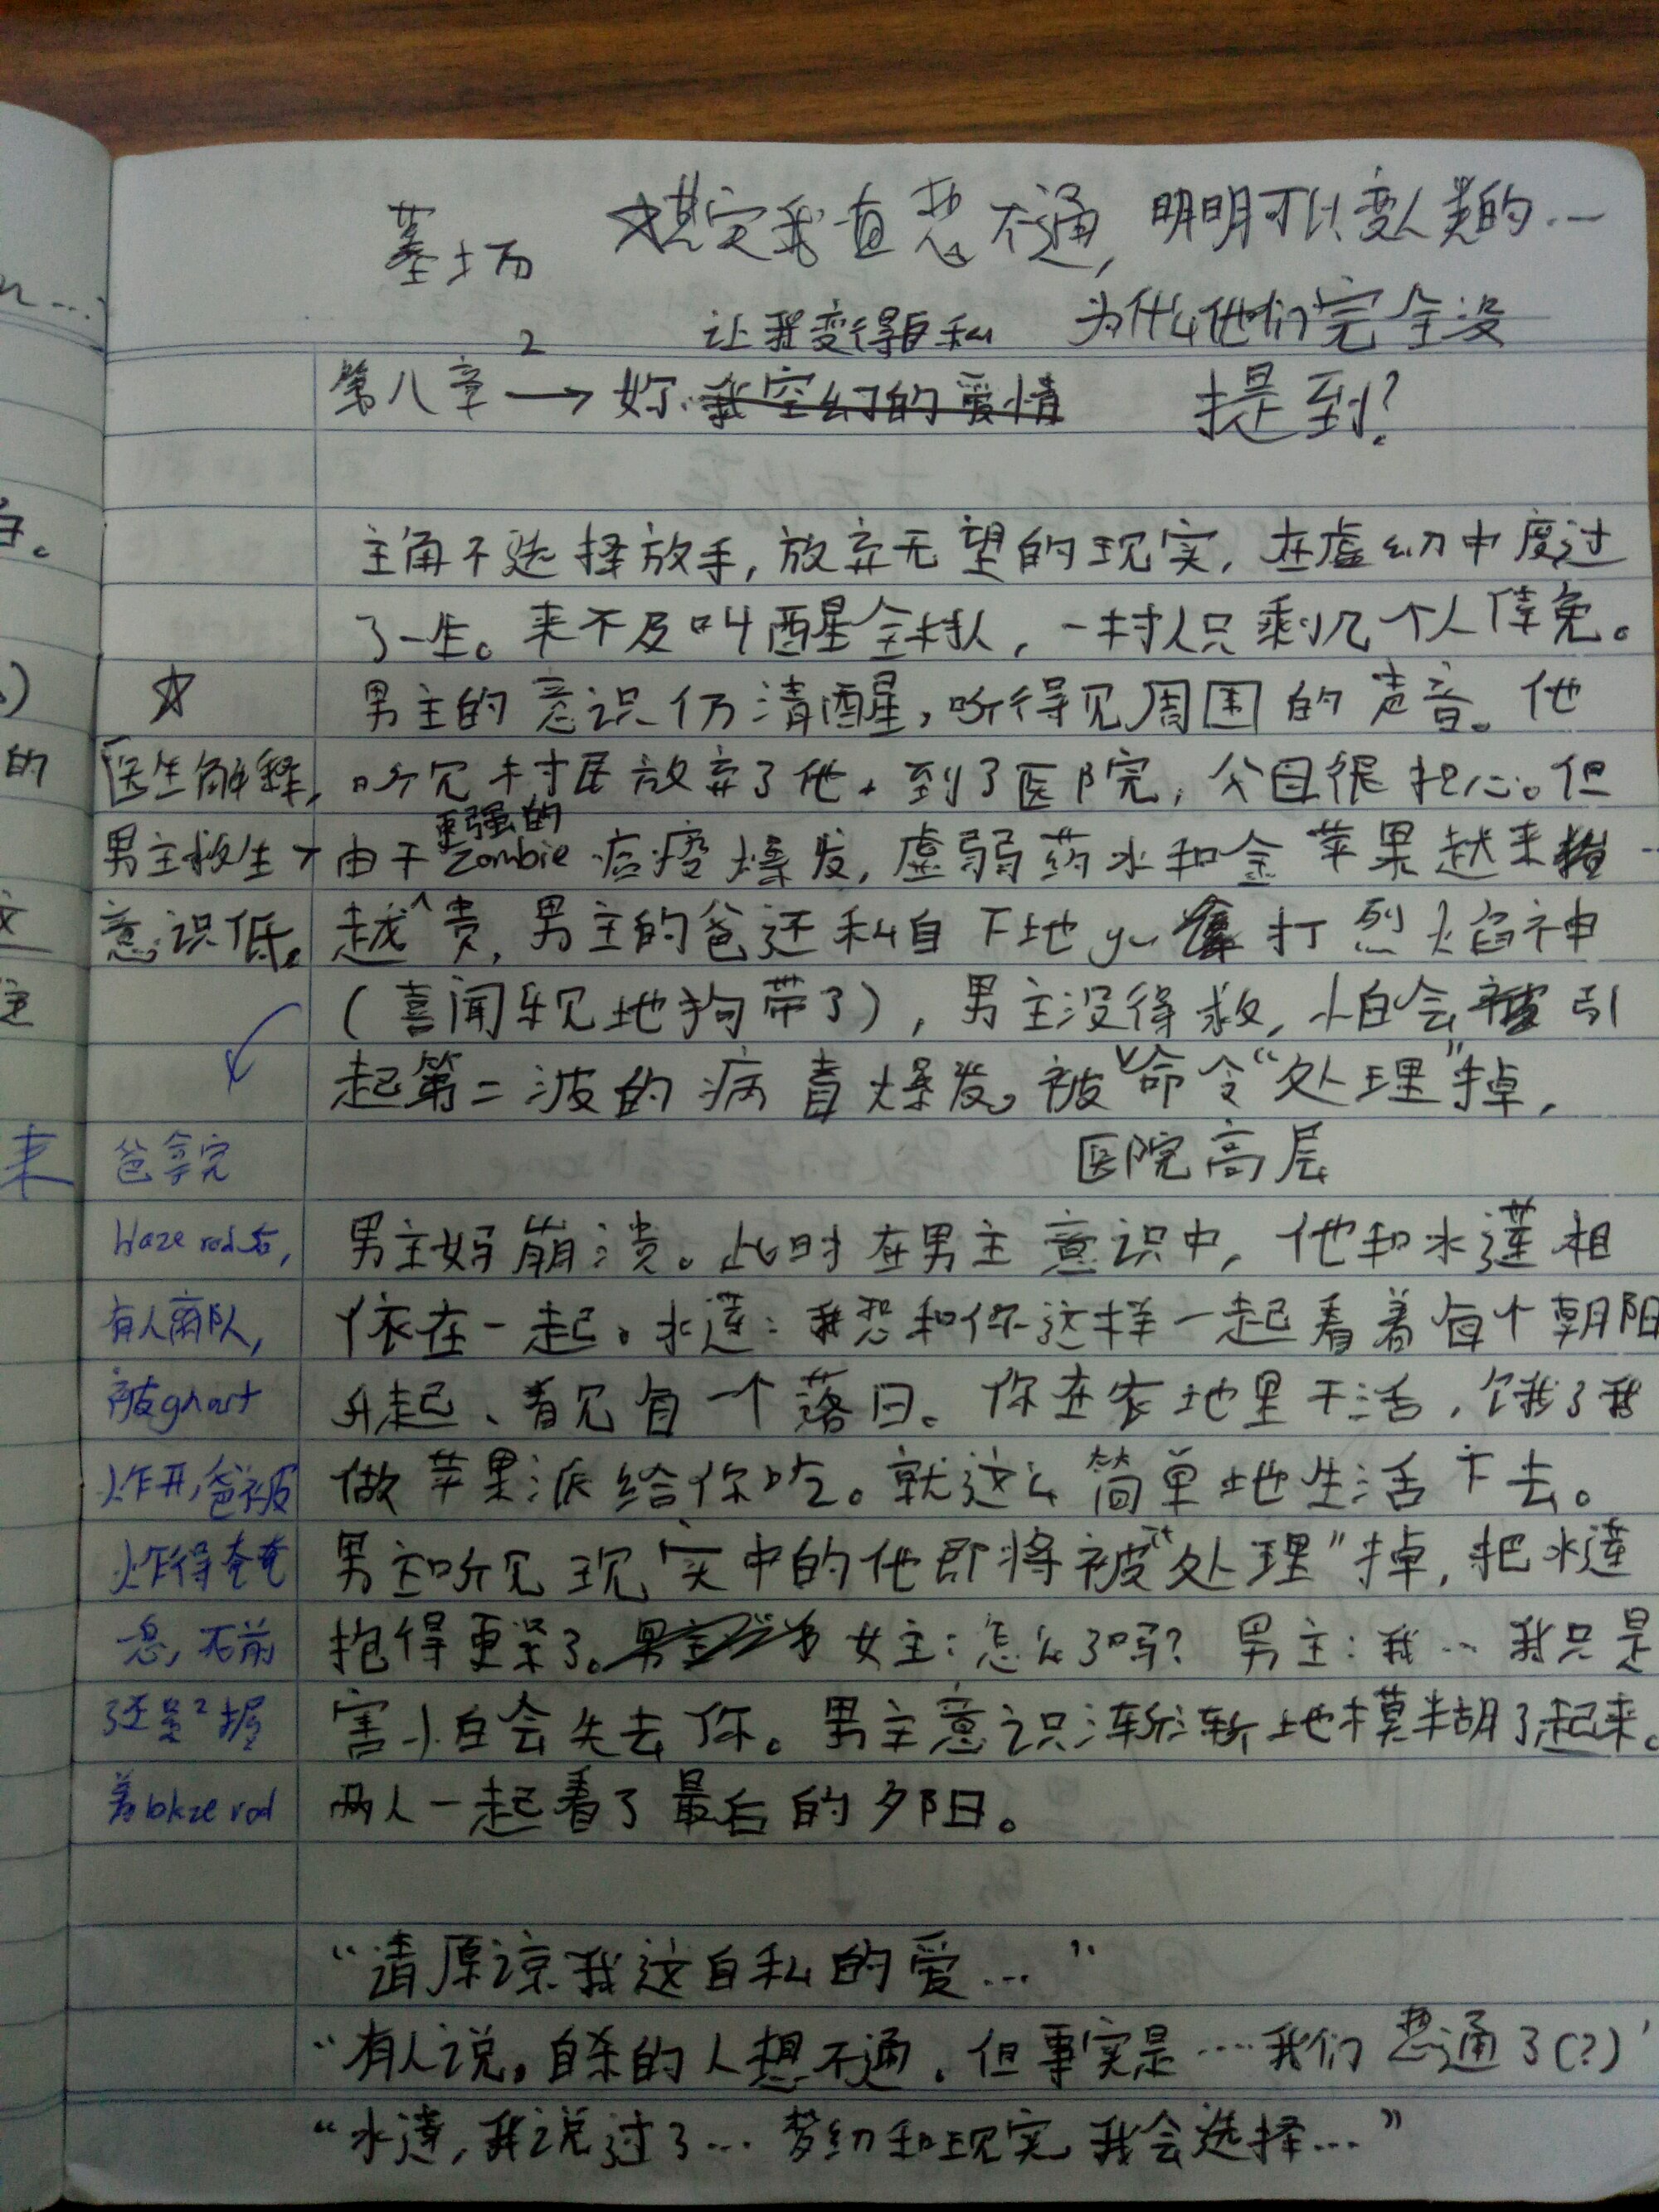 墓场
☆其实我一直想不通,明明可以变人类的…
让我变得自私 为什么他们完全没
第八章2 → 妳 我空幻的爱情 提到?
主角不选择放手,放弃无望的现实,在虚幻中度过
了一生。来不及叫醒全村人,一村人只剩几个人倖免。
☆ 男主的意识仍清醒,听得见周围的声音。他
医生解释, 听见村民放弃了他,到了医院,父母很担心。但
更强的
男主救生 由于zombie 瘟疫爆发,虚弱药水和金苹果越来
意识低。 越贵,男主的爸还私自下地yu 打烈焰神
(喜闻乐见地狗带了),男主没得救,怕会引
起第二波的病毒爆发。被命令“处理”掉,
医院高层
爸拿完
blaze rod后, 男主妈崩溃。此时在男主意识中,他和水莲相
有人离队, 依在一起。水莲:我想和你这样一起看着每个朝阳
被ghast 升起、看见每一个落日。你在农地里干活,饿了我
炸开,爸被 做苹果派给你吃。就这么简单地生活下去。
炸得奄奄 男主听见现实中的他即将被“处理”掉,把水莲
一息,死前 抱得更紧了。女主:怎么了吗?男主:我…我只是
还紧2握 害怕会失去你。男主意识渐渐地模糊了起来。
着blaze rod 两人一起看了最后的夕阳。
“请原谅我这自私的爱…”
“有人说,自杀的人想不通,但事实是……我们想通了(?)’
“水莲,我说过了… 梦幻和现实,我会选择…”